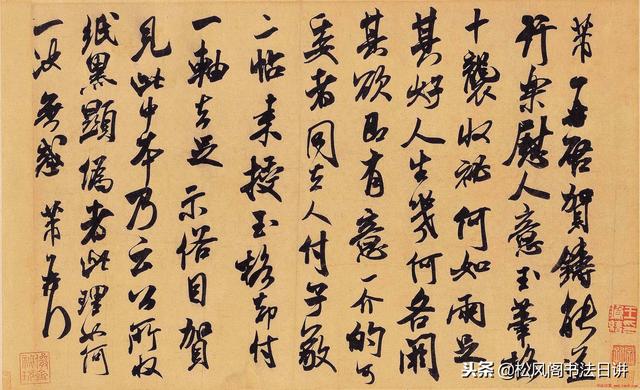 芾再啓賀鑄能道
行樂慰人意玉筆格
十襲收秘何如兩足
其好人生幾何各閼
其欲即有意一介的可
委者同去人付子敬
二帖来授玉格却付
一軸去足示俗目賀
見此中本乃云公所收
紙黑顯偽者此理如何
一决無惑芾再拜
头条@松风阁书法日讲